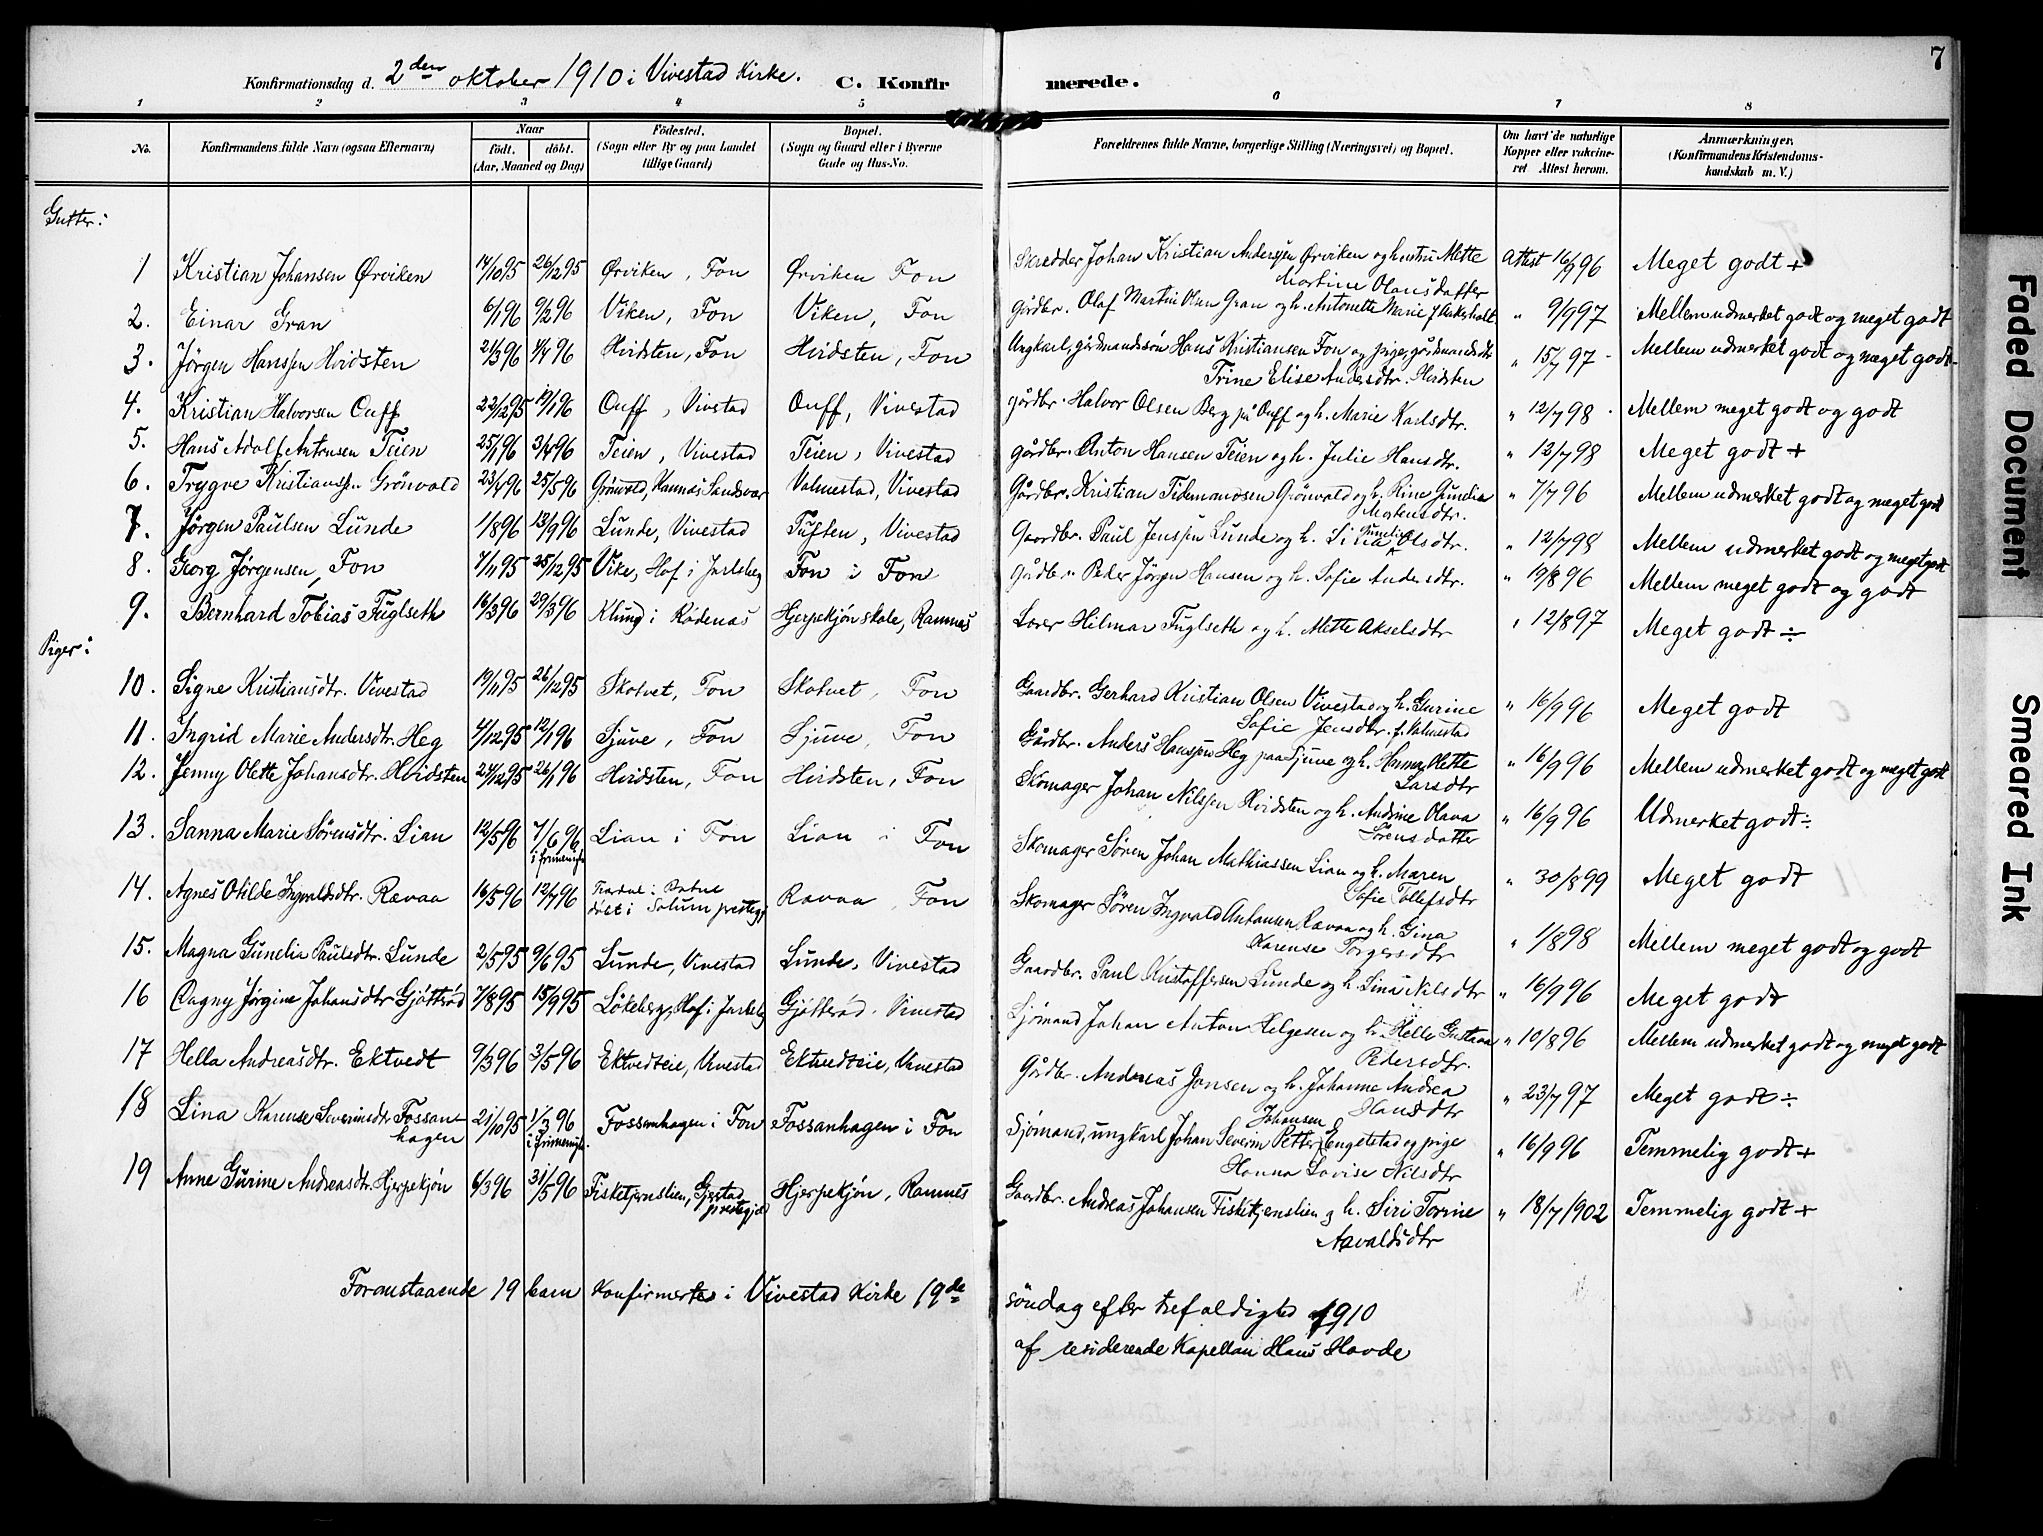 7
Konfirmationsdag d. 2den oktober 1910 i Vivestad Kirke. C. Konfirmerede.
1 2 3 4 5 6 7 8
No. Konfirmandens fulde Navn (ogsaa Efternavn) Naar født. døbt. (Aar, Maaned og Dag) Fødested. (Sogn eller By og paa Landet tillige Gaard) Bopæl. (Sogn og Gaard eller i Byerne Gade og Hus-No. Forældrenes fulde Navne, borgerlige Stilling (Næringsvei) og Bopæl. Om havt de naturlige Kopper eller vakcineret Attest herom. Anmærkninger. (Konfirmandens Kristendomskundskab m. V.)
Gutter:
1 Kristian Johansen Ørviken 14/10 95 26/12 95 Ørviken, Fon Ørviken Fon Skrædder Johan Kristian Andersen Ørviken og hustru Mette Martine Olausdatter Attest 16/9 96 Meget godt +
2. Einar Gran 6/1 96 9/2 96 Viken, Fon Viken, Fon Gårdbr. Olaf Martin Olsen Gran og h. Antonette Marie " 9/9 97 Mellem udmerket godt og meget godt
3. Jørgen Hanssen Hvidsten 21/3 96 4/4 96 Hvidsten, Fon Hvidsten, Fon Ungkarl, gårdmandssøn Hans Kristiansen Fon og pige, gårdmandsdtr Trine Elise Andersdtr. Hvidsten " 15/7 97 Mellem udmerket godt og meget godt
4. Kristian Halvorsen Ouff 22/12 95 19/1 96 Ouff, Vivstad Ouff, Vivestad gårdbr. Halvor Olsen Berg på Ouff og h. Marie Karlsdtr. " 12/7 98 Mellem meget godt og godt
5. Hans Adolf Antonsen Teien 25/1 96 3/4 96 Teien, Vivestad Teien, Vivestad gårdbr. Anton Hansen Teien og h. Julie Hansdtr. " 12/7 98 Meget godt +
6. Trygve Kristianssen Grönvold 23/4 96 25/5 96 Grönvold, Hannas Sandsvær Valmestad, Vivestad Gårdbr. Kristian Tidemandsen Grönvald og h. Rine Gunelia Mortensdtr. " 7/7 96 Mellem udmerket godt og meget godt
7. Jørgen Paulsen Lunde 1/8 96 13/9 96 Lunde, Vivestad Tuften, Vivestad Gaardbr. Paul Jenssen Lunde og h. Sina Gunelie Olsdtr. " 12/7 98 Mellem udmerket godt og meget godt
8. Georg Jørgensen, Fon 7/11 95 25/12 95 Vike, Hof i Jarlsberg Fon i Fon Gårdbr. Peder Jörgen Hansen og h. Sofie Andersdtr. " 19/8 96 Mellem meget godt og godt
9. Bernhard Tobias Fuglseth 16/3 96 29/3 96 Klund i Rødenas Hjerpekjøn skole, Ramnæs Lærer Hilmar Fuglseth og h. Mette Akselsdtr " 12/8 97 Meget godt ÷
Piger:
10. Signe Kristiansdtr. Vivestad 19/11 95 26/12 95 Skotvet, Fon Skotvet, Fon Gaardbr. Gerhard Kristian Olsen Vivestad og h. Gurine Sofie Jensdtr. f. Valmestad " 16/9 96 Meget godt
11. Ingrid Marie Andersdtr. Heg 4/12 95 12/1 96 Sjuve, Fon Sjuve, Fon Gårdbr. Anders Hanssen Heg paa Sjuve og h. Hanna Mette Larsdtr " 16/9 96 Mellem udmerket godt og meget godt
12. Jenny Olette Johansdtr. Hvidsten 27/12 95 26/1 96 Hvidsten, Fon Hvidsten, Fon Skomager Johan Nilssen Hvidsten og h. Andrine Olava Sörensdatter " 16/9 96 Udmerket godt ÷
13. Sanna Marie Sørensdtr. Lian 12/5 96 7/6 96 i frimenigh. Lian i Fon Lian i Fon Skomager Søren Johan Mathiassen Lian og h. Maren Sofie Tollefsdtr " 30/8 99 Meget godt
14. Agnes Otilde Ingvaldsdtr. Rævaa 16/5 96 12/7 96 døbt i Solum prestegj. Ravaa, Fon Skomager Søren Ingvald Antonsen Ravaa og h. Gina Karense Torgersdtr " 1/8 98 Mellem meget godt og godt
15. Magna Gunelia Paulsdtr. Lunde 2/5 95 9/6 95 Lunde, Vivestad Lunde, Vivestad Gaardbr. Paul Kristoffersen Lunde og h. Lina Nilsdtr " 16/9 96 Meget godt
16 Dagny Jørgine Johansdtr Gjötteröd 7/8 95 15/9 95 Løkeberg, Hof i Jarlsbg Gjötteröd, Vivestad Sjømand Johan Anton Helgesen og h. Helle Gustava Pedersdtr. " 10/8 96 Mellem udmerket godt og meget godt
17 Hella Andreasdtr. Ektvedt 9/3 96 3/5 96 Ektvedteie, Vivestad Ektvedteie, Vivestad Gårdbr. Andreas Jonsen og h. Johanne Andrea Hansdtr " 23/7 97 Meget godt ÷
18 Lina Karense Severinsdtr Fossanhagen 21/10 95 1/3 96 i frimenigh. Fossanhagen i Fon Fossanhagen i Fon Sjømand, ungkarl Johan Severin Petter Johansen Engelstad og pige Hanna Lovise Nilsdtr " 16/9 96 Temmelig godt +
19 Anne Gurine Andreasdtr. Hjerpekjøn 6/3 96 31/5 96 Fisketjernslien, Gjerstad prestegjæld Hjerpekjøn, Ramnes Gaardbr. Andreas Johansen Fisketjenslien og h. Siri Torine Aavaldsdtr " 18/7 1902 Temmelig godt +
Foranstaaende 19 barn konfirmertes i Vivestad Kirke 19de søndag efter trefoldighed 1910
af residerende Kapellan Hans Hovde
Faded Document
Smeared Ink